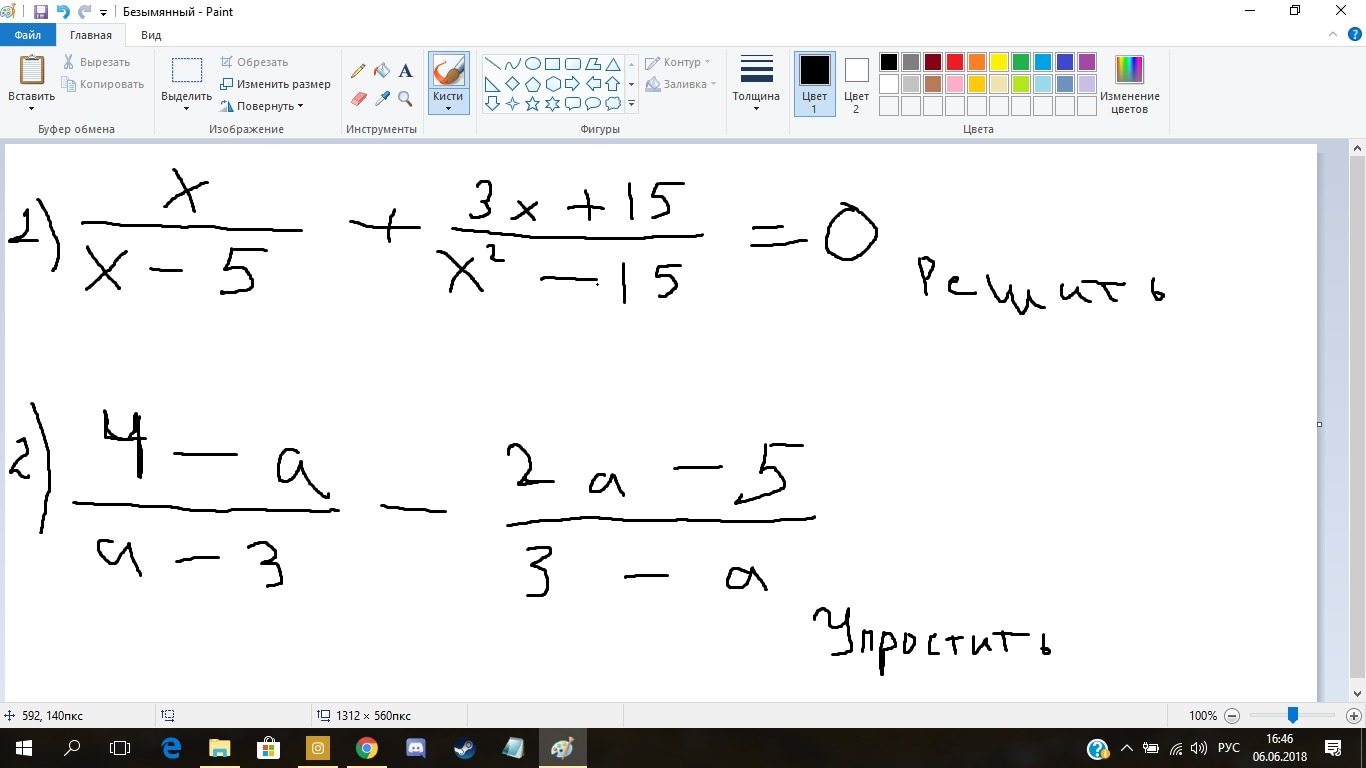 Безымянный - Paint
Файл Главная Вид
Вставить
Вырезать
Копировать
Буфер обмена
Выделить
Обрезать
Изменить размер
Повернуть
Изображение
A
Инструменты
Кисти
Контур
Заливка
Фигуры
Толщина
Цвет 1
Цвет 2
Изменение цветов
Цвета
1) x/(x - 5) + (3x + 15)/(x² - 15) = 0 Решить
2) (4 - a)/(a - 3) - (2a - 5)/(3 - a)
Упростить
592, 140пкс
1312 × 560пкс
100%
РУС
16:46
06.06.2018